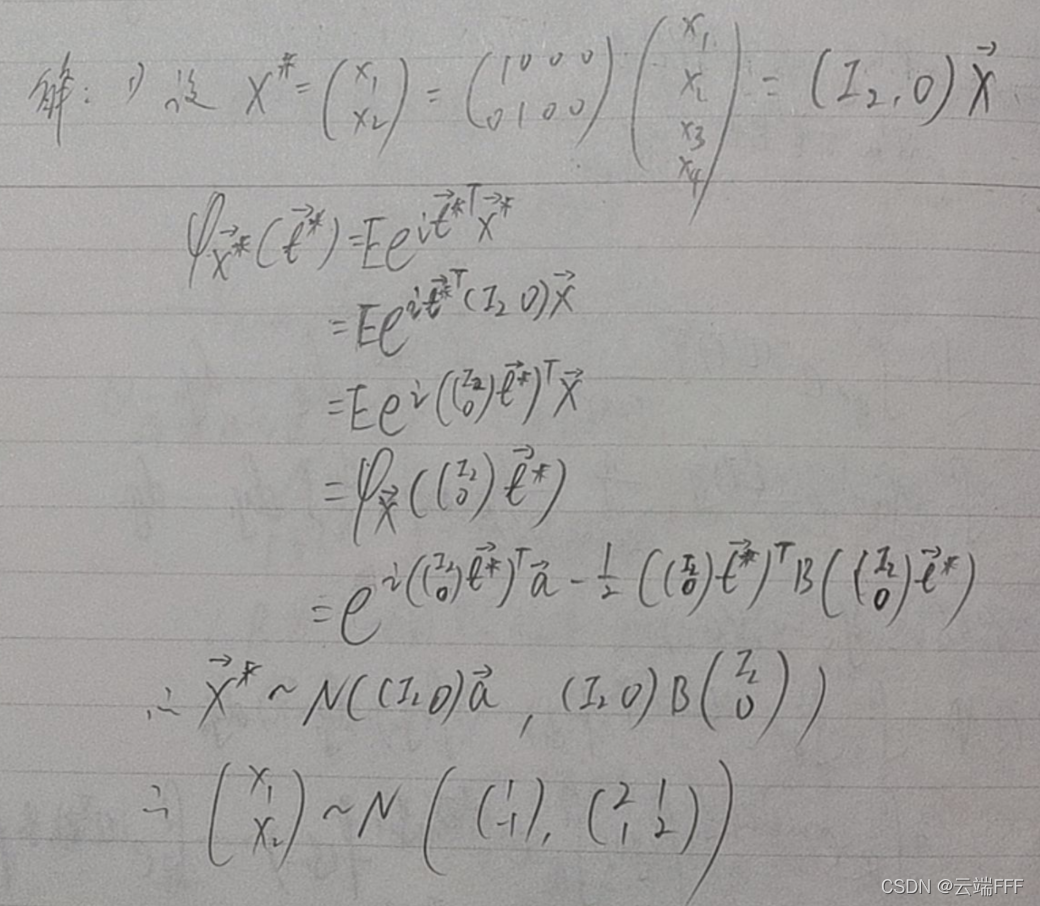 解: 1) 设 X* = (x₁ x₂) = (1 0 0 0 0 1 0 0) (x₁ x₂ x₃ x₄) = (I₂, 0) X⃗
φ_X⃗*(t⃗*) = E e^{i t⃗*ᵀ X⃗*}
= E e^{i t⃗*ᵀ (I₂ 0) X⃗}
= E e^{i ((I₂ 0) t⃗*)ᵀ X⃗}
= φ_X⃗ ((I₂ 0) t⃗*)
= e^{i ((I₂ 0) t⃗*)ᵀ a⃗ - 1/2 ((I₂ 0) t⃗*)ᵀ B ((I₂ 0) t⃗*)}
∴ X⃗* ~ N((I₂ 0) a⃗, (I₂ 0) B (I₂ 0))
∴ (x₁ x₂) ~ N ((1 -1), (2 1 1 2))
CSDN @云端FFF